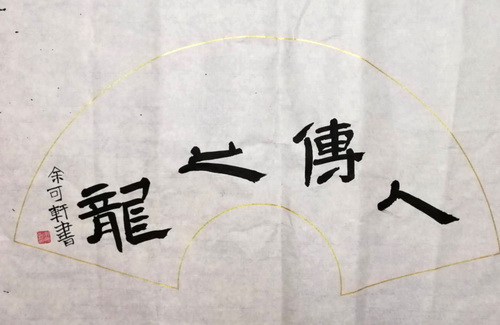 龍之傳人
余可軒書